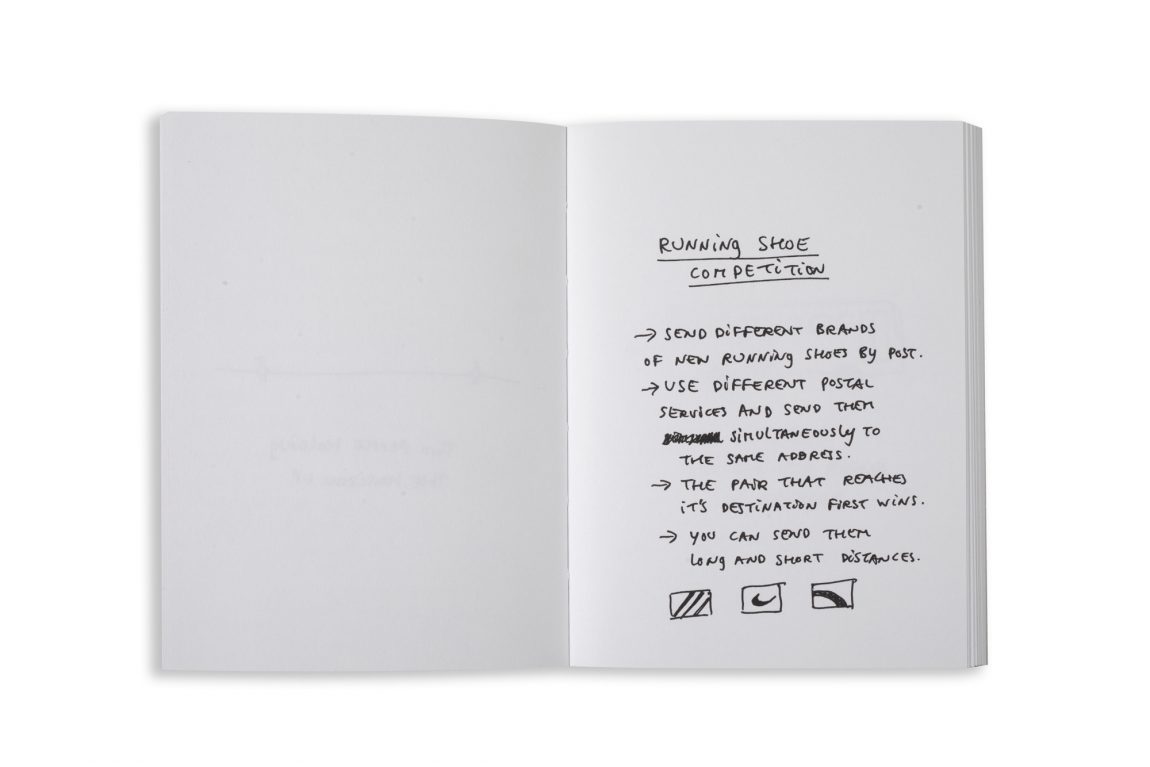 RUNNiNg SHOE
COMPETiTiON
→ SEND DiFFERENT BRANDS
OF NEW RUNNiNg SHOES By POST.
→ USE DiFFERENT POSTAL
SERViCES AND SEND THEM
SiMULTANEOUSLy TO
THE SAME ADDRESS.
→ THE PAiR THAT REACHES
iT'S DESTiNATiON FiRST WiNS.
→ yOU CAN SEND THEM
LONg AND SHORT DiSTANCES.